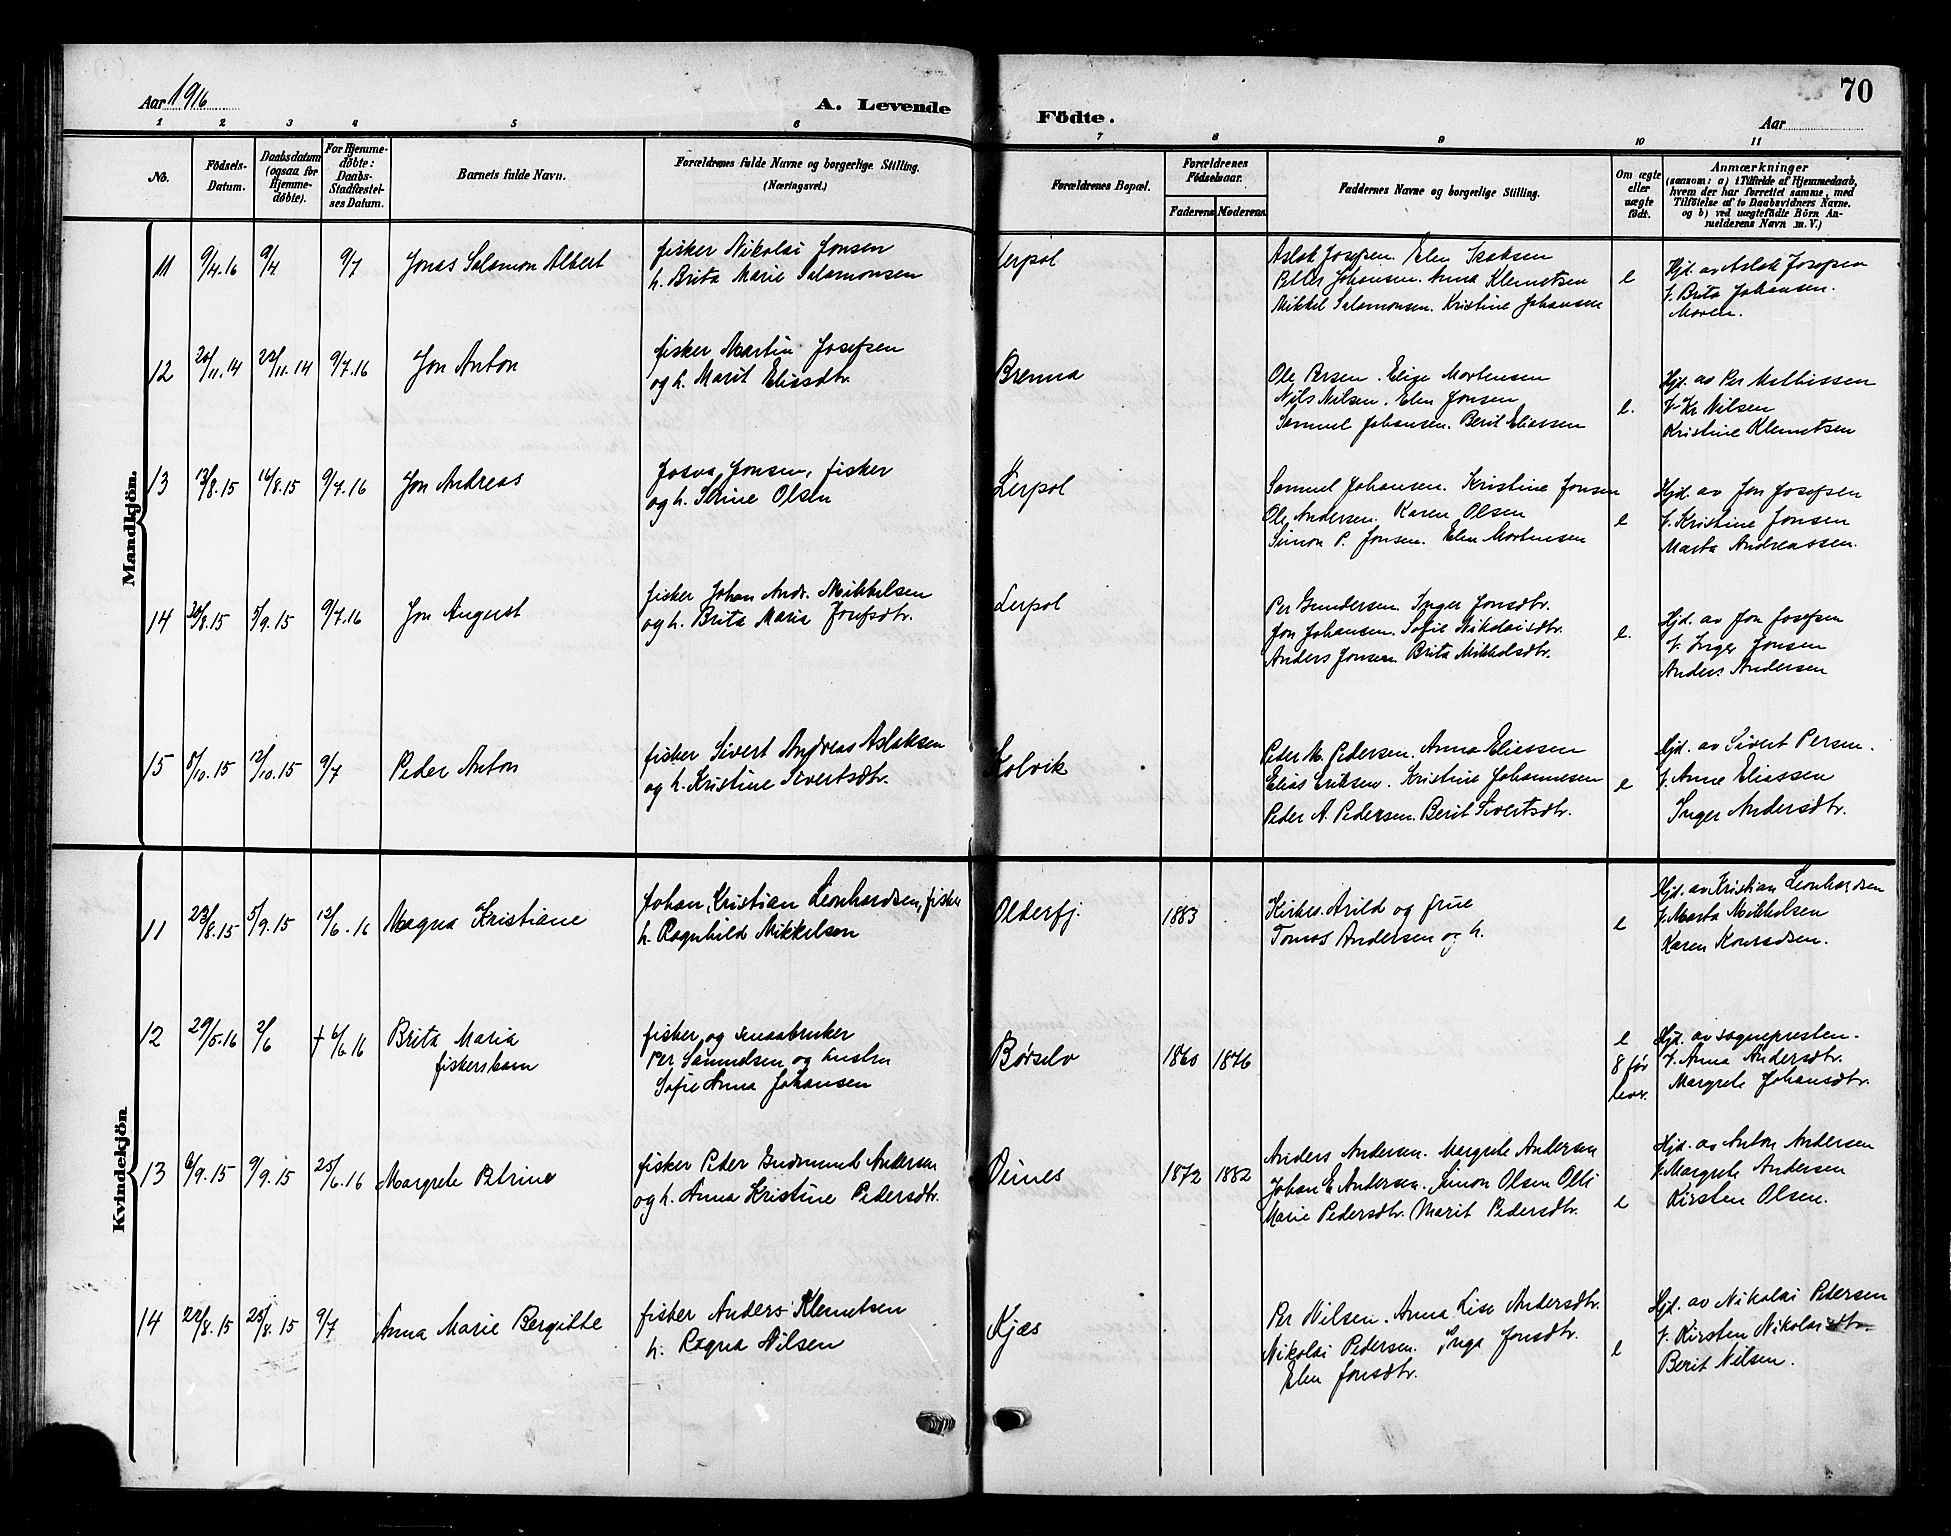 Aar 1916
A. Levende Födte.
70
Aar
1 2 3 4 5 6 7 8 9 10 11
No.
Födsels-Datum.
Daabsdatum (ogsaa for Hjemme-döbte).
For Hjemme-döbte: Daabs-Stadfæstel-ses Datum.
Barnets fulde Navn.
Forældrenes fulde Navne og borgerlige Stilling. (Næringsvei.)
Forældrenes Bopæl.
Forældrenes Födselsaar.
Faderens Moderens
Faddernes Navne og borgerlige Stilling.
Om ægte eller uægte födt.
Anmærkninger
(saasom: a) i Tilfælde af Hjemmedaab,
hvem der har forrettet samme, med
Tilföielse af to Daabsvidners Navne.
og b) ved uægtefödte Börn An-
melderens Navn m. V.)
Mandkjön.
11 9/4.16 9/4 9/7 Jonas Salamon Albert
fisker Nikolai Jonsen
h. Brita Marie Salamonsen
Lerpol
Aslak Josefsen. Elen Isaksen
Peder Johansen. Anna Klemetsen
Mikkel Salamonsen. Kristine Johansen
e
Hjd. av Aslak Josefsen
V. Brita Johansen.
Moren.
12 20/11.14 22/11.14 9/7.16 Jon Anton
fisker Martin Josefsen
og h. Marit Eliasdtr.
Brenna
Ole Persen. Elige Mortensen
Nils Nilsen. Elen Jonsen
Samuel Johansen. Berit Eliassen
e.
Hjd. av Per Mathissen
V. Kr Nilsen
Kristine Klemetsen
13 13/8.15 16/8.15 9/7.16 Jon Andreas
Josva Jonsen, fisker
og h. Serine Olsen
Lerpol
Samuel Johansen. Kristine Jonsen
Ole Andersen. Karen Olsen
Simon P. Jonsen. Elen Mortensen
e
Hjd. av Jon Josefsen
V. Kristine Jonsen
Marta Andreassen.
14 30/8.15 5/9.15 9/7.16 Jon August
fisker Johan Andr. Mikkelsen
og h. Brita Maria Josefsdtr.
Lerpol
Per Gundersen Inger Jonsdtr.
Jon Johansen. Sofie Nikolaisdtr.
Anders Jonsen. Brita Mikkelsdtr.
e.
Hjd. av Jon Josefsen
V. Inger Jonsen
Anders Andersen
15 5/10.15 12/10.15 9/7 Peder Anton
fisker Sivert Andreas Aslaksen
og h. Kristine Sivertsdtr.
Kolvik
Peder M. Pedersen. Anna Eliassen
Elias Eriksen. Kristine Johannesen
Peder A. Pedersen. Berit Sivertsdtr.
e
Hjd. av Sivert Persen.
V. Anne Eliassen
Inger Andersdtr.
Kvindekjön.
11 23/8.15 5/9.15 12/6.16 Magna Kristiane
Johan Kristian Leonhardsen, fisker
h. Ragnhild Mikkelsen
Olderfj. 1883
Kirkes. Arild og frue
Tomas Andersen og h.
e
Hjd. av Kristian Leonhardsen
V. Marta Mikkelsen
Karen Konradsen.
12 29/5.16 2/6 † 6/6.16 Brita Maria
fiskersbarn
fisker og smaabruker
Per Samuelsen og hustru
Sofie Anna Johansen
Børselv 1860 1876
e
8 før
levr.
Hjd. av sognepresten.
V. Anna Andersdtr.
Margrete Johansdtr.
13 6/9.15 9/9.15 25/6.16 Margrete Petrine
fisker Peder Gudmund Andersen
og h. Anna Kristine Pedersdtr.
Oines 1872 1882
Anders Andersen. Margrete Andersen
Johan E. Andersen. Simon Olsen Olli
Marie Pedersdtr. Marit Pedersdtr.
e
Hjd. av Anton Andersen
V. Margrete Andersen
Kirsten Olsen.
14 22/8.15 25/8.15 9/7 Anna Marie Bergitte
fisker Anders Klemetsen
h. Ragna Nilsen
Kjæs
Per Nilsen. Anna Lise Andersdtr.
Nikolai Pedersen. Inga Jonsdtr.
Elen Jonsdtr.
e
Hjd. av Nikolai Pedersen
V. Kirsten Nikolaisdtr.
Berit Nilsen.